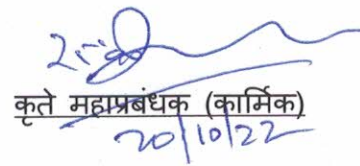 कृते महाप्रबंधक (कार्मिक)
20/10/22